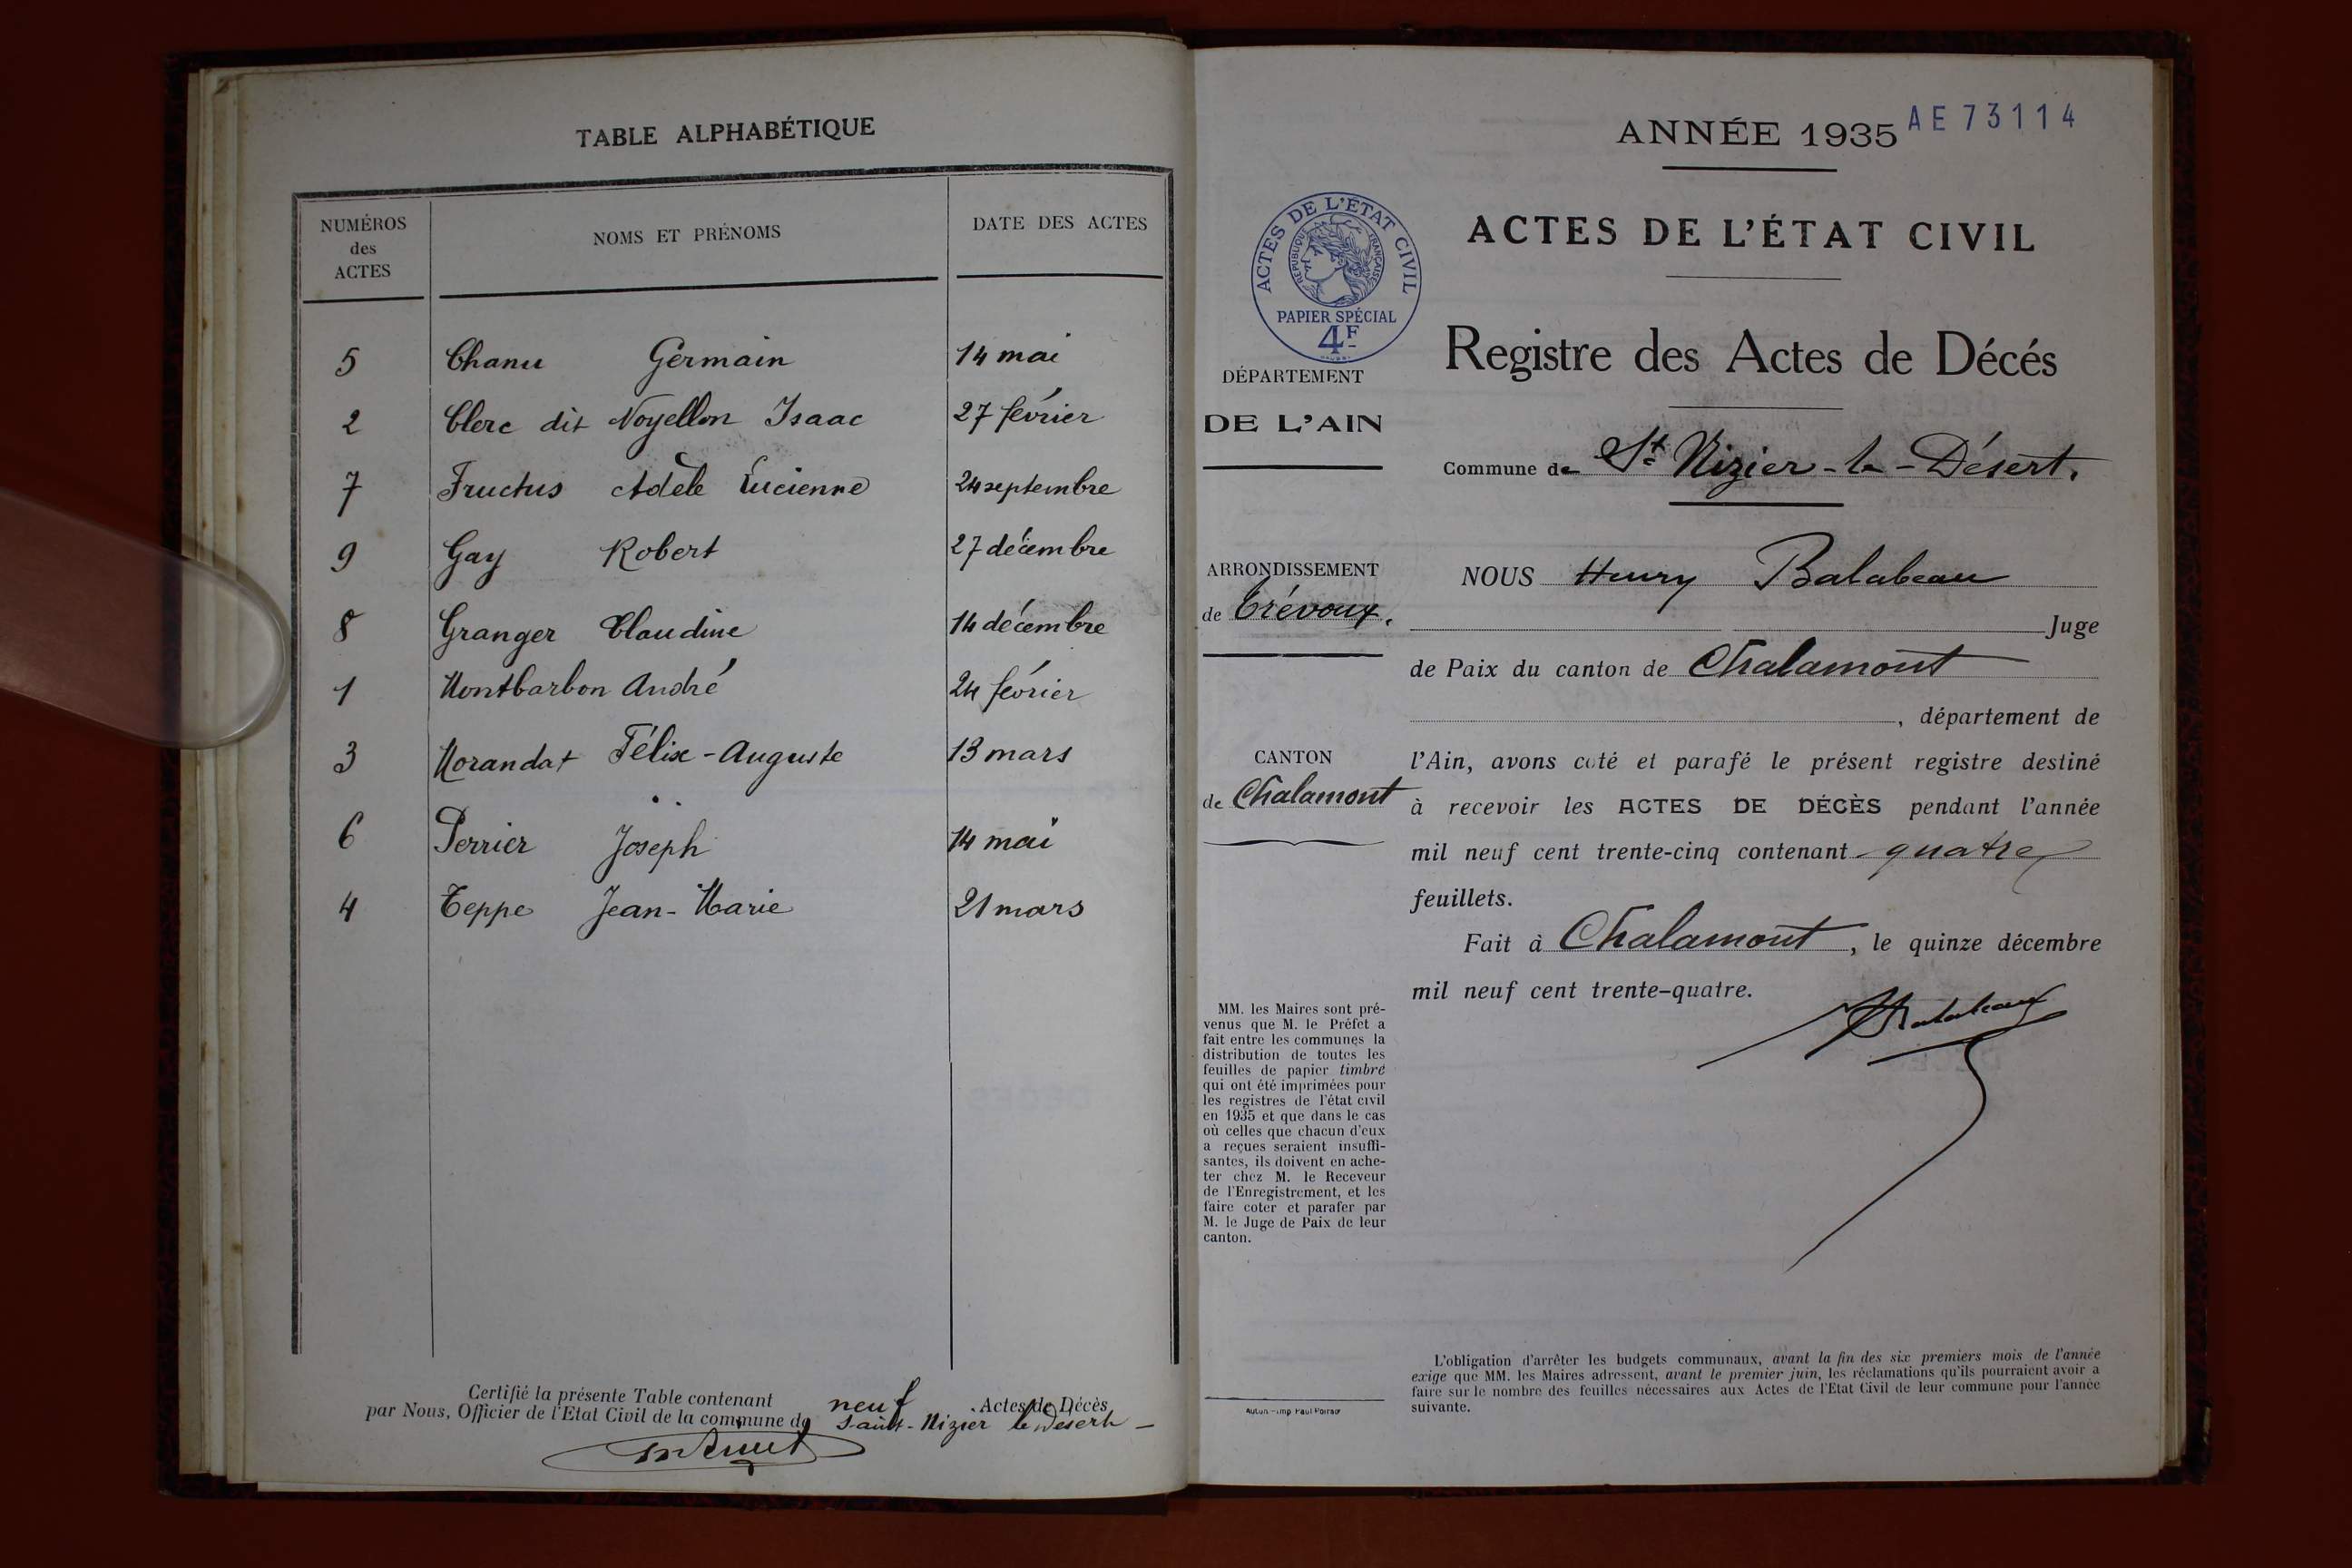 TABLE ALPHABÉTIQUE
NUMÉROS
des
ACTES
NOMS ET PRÉNOMS
DATE DES ACTES
5 Chanu Germain 14 mai
2 Clerc dit Noyellon Isaac 27 février
7 Fructus Adèle Lucienne 24 septembre
9 Gay Robert 27 décembre
8 Granger Claudine 14 décembre
1 Montbarbon André 24 février
3 Morandat Félix-Auguste 13 mars
6 Perrier Joseph 14 mai
4 Teppe Jean-Marie 21 mars
Certifié la présente Table contenant neuf Actes de Décès
par Nous, Officier de l'Etat Civil de la commune de Saint-Nizier le Désert
ANNÉE 1935 AE 73114
ACTES DE L'ÉTAT CIVIL
RÉPUBLIQUE FRANÇAISE
PAPIER SPÉCIAL
4F
ACTES DE L'ÉTAT CIVIL
Registre des Actes de Décés
DÉPARTEMENT
DE L'AIN
Commune de St Nizier-le-Désert.
ARRONDISSEMENT
de Trévoux.
CANTON
de Chalamont
NOUS Henry Balabeau
Juge
de Paix du canton de Chalamont
, département de
l'Ain, avons coté et parafé le présent registre destiné
à recevoir les ACTES DE DÉCÈS pendant l'année
mil neuf cent trente-cinq contenant quatre
feuillets.
Fait à Chalamont, le quinze décembre
mil neuf cent trente-quatre.
MM. les Maires sont pré-
venus que M. le Préfet a
fait entre les communes la
distribution de toutes les
feuilles de papier timbré
qui ont été imprimées pour
les registres de l'état civil
en 1935 et que dans le cas
où celles que chacun d'eux
a reçues seraient insuffi-
santes, ils doivent en ache-
ter chez M. le Receveur
de l'Enregistrement, et les
faire coter et parafer par
M. le Juge de Paix de leur
canton.
Autun - Imp Paul Poirson
L'obligation d'arrêter les budgets communaux, avant la fin des six premiers mois de l'année
exige que MM. les Maires adressent, avant le premier juin, les réclamations qu'ils pourraient avoir a
faire sur le nombre des feuilles nécessaires aux Actes de l'Etat Civil de leur commune pour l'année
suivante.